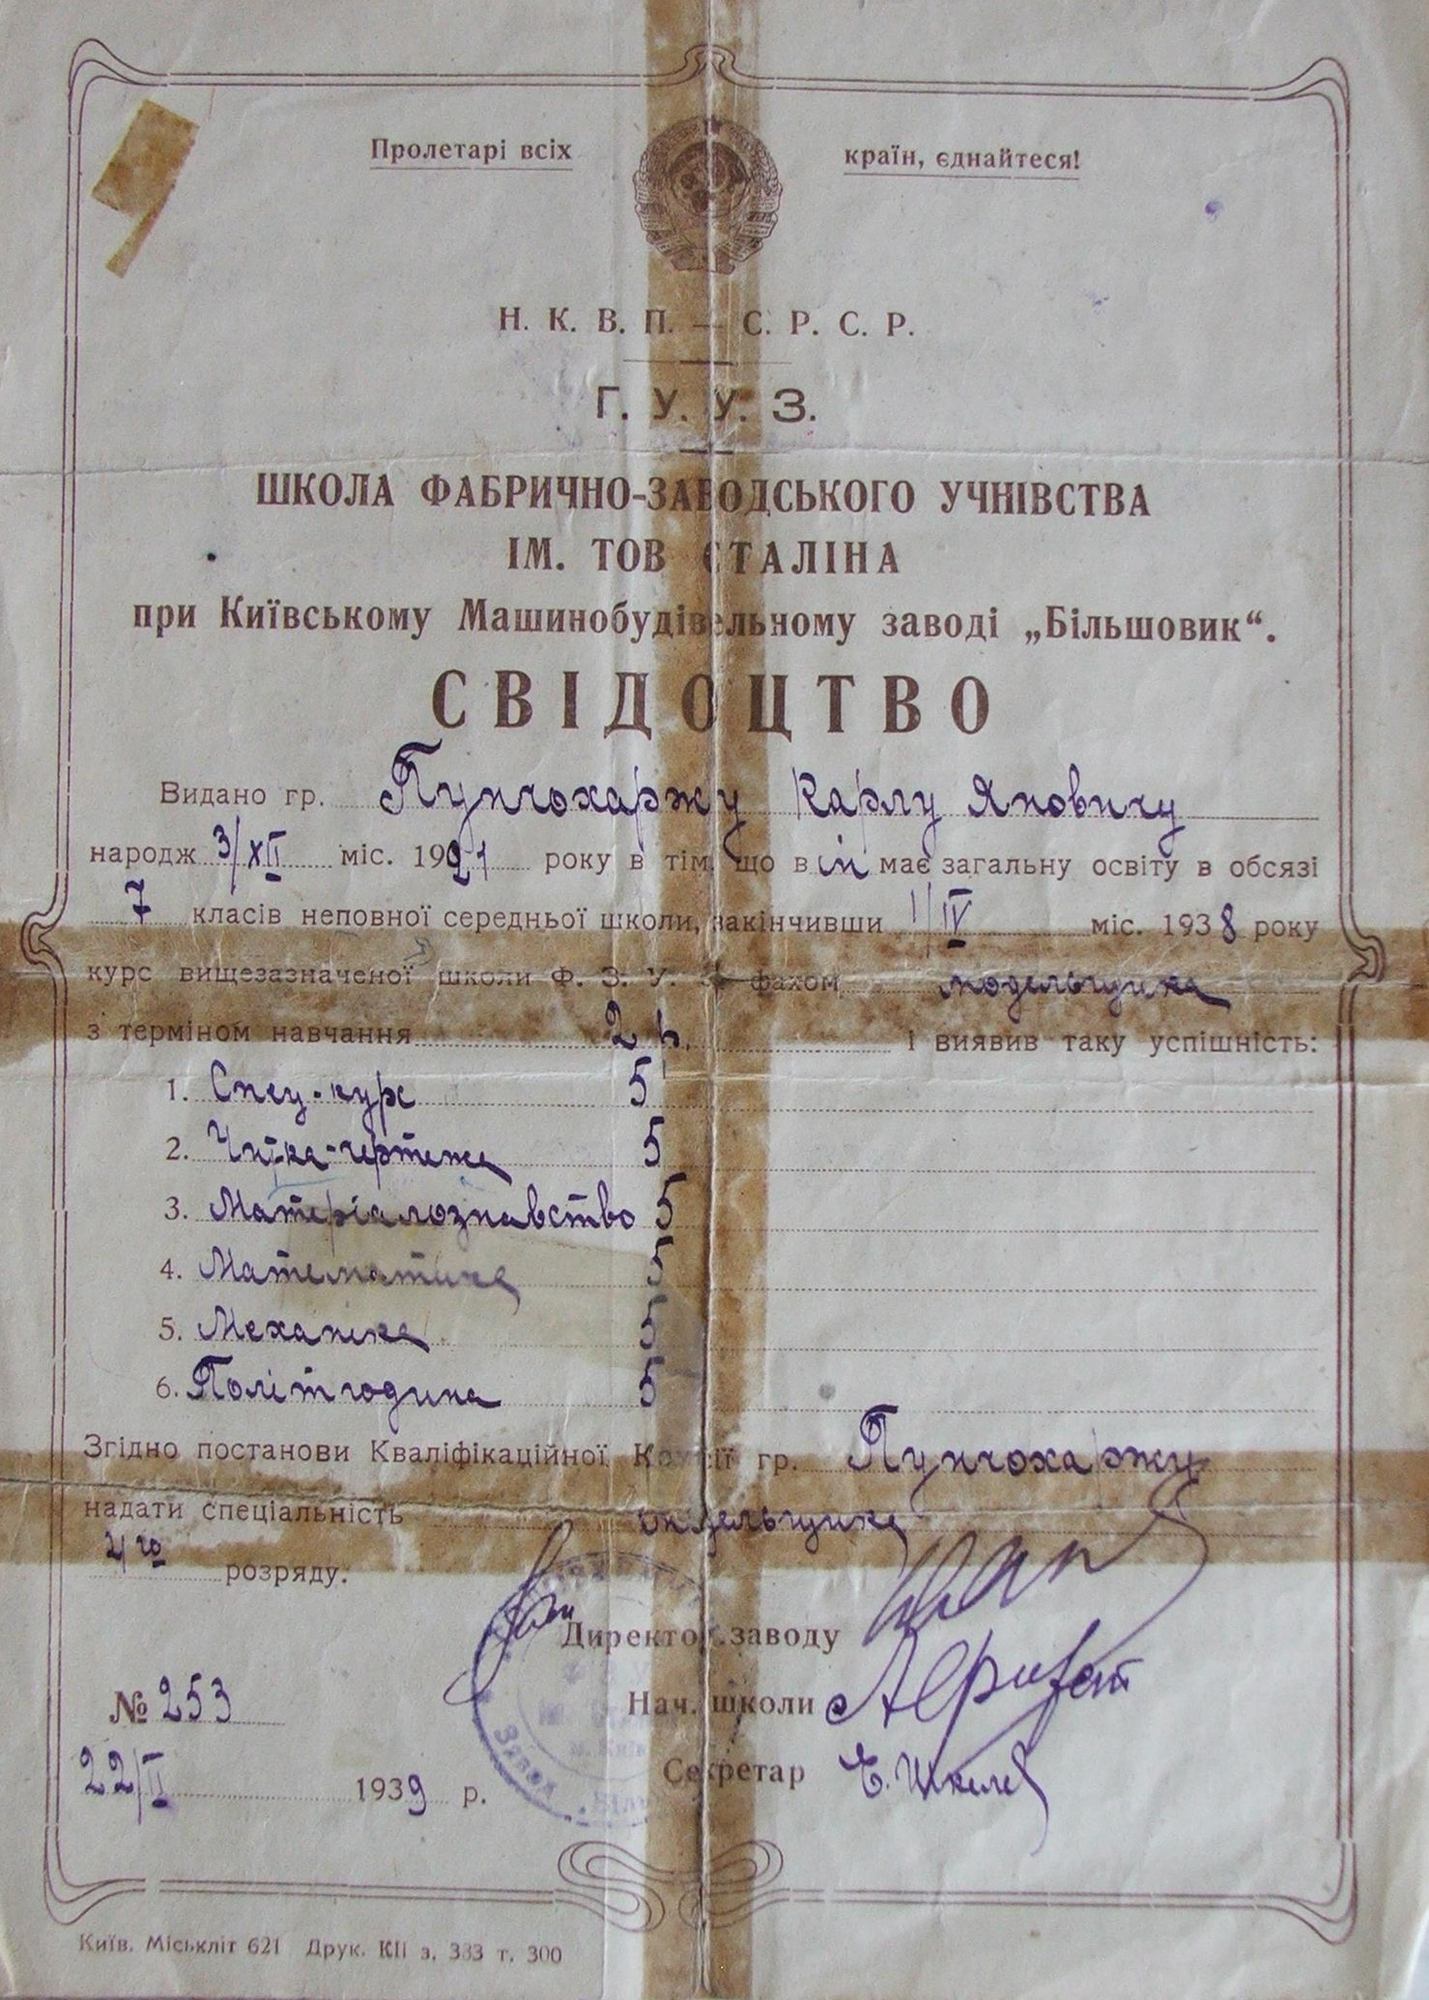 Пролетарі всіх країн, єднайтеся!
Н. К. В. П. — С. Р. С. Р.
Г. У. У. З.
ШКОЛА ФАБРИЧНО-ЗАВОДСЬКОГО УЧНІВСТВА
ІМ. ТОВ СТАЛІНА
при Київському Машинобудівельному заводі „Більшовик“.
СВІДОЦТВО
Видано гр. Пунчохаржу Карлу Яновичу
народж 3/XII міс. 1921 року в тім, що він має загальну освіту в обсязі
7 класів неповної середньої школи, закінчивши 1/IV міс. 1938 року
курс вищезазначеної школи Ф. З. У. З фахом модельщика
з терміном навчання 2 р. і виявив таку успішність:
1. Спец-курс 5
2. Читка-чертежа 5
3. Матеріалознавство 5
4. Математика 5
5. Механіка 5
6. Політгодина 5
Згідно постанови Кваліфікаційної Комісії гр. Пунчохаржу
надати спеціальність модельщика
4го розряду.
Директор заводу
Нач. школи
№ 253
Секретар
22/II 1939 р.
Завод „Біль
Київ. Міськліт 621 Друк. КІІ з. 333 т. 300